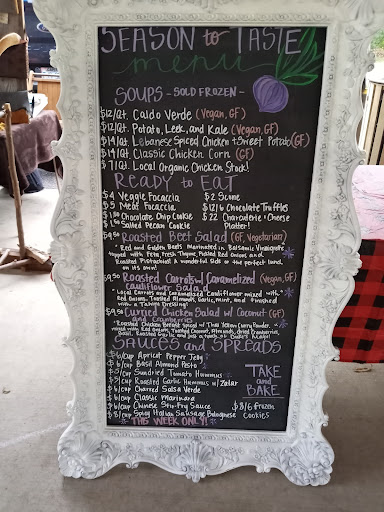 SEASON to TASTE
menu
SOUPS - SOLD FROZEN -
$12/Qt. Caldo Verde (Vegan, GF)
$12/Qt. Potato, Leek, and Kale (Vegan, GF)
$14/Qt. Lebanese Spiced Chicken + Sweet Potato (GF)
$14/Qt. Classic Chicken Corn (GF)
$7/Qt. Local Organic Chicken Stock!
READY to EAT
$4 Veggie Focaccia $2 Scone
$5 Meat Focaccia $12/6 Chocolate Truffles
Chocolate Chip Cookie $22 Charcuterie + Cheese
Salted Pecan Cookie Platter!
$9.50 Roasted Beet Salad (GF, Vegetarian)
* Red and Golden Beets Marinated in Balsamic Vinaigrette
topped with Feta, Fresh Thyme, Pickled Red Onions and
Roasted Pistachios! A wonderful side or the perfect lunch
on its own!
$9.50 Roasted Carrots w/ Caramelized (Vegan, GF)
Cauliflower Salad
* Local Carrots and Caramelized Cauliflower mixed with
Red Onion, Toasted Almonds, Garlic, mint, and finished
with a Tahini Dressing!
$9.50 Curried Chicken Salad w/ Coconut (GF)
and Cranberries
* Roasted Chicken Breast Spiced w/ Thai Yellow Curry Powder,
mixed with Red Onion, Toasted Coconut, Almonds, Dried Cranberries,
Basil, Roasted and just a touch of Duke's Mayo!
SAUCES and SPREADS
$6/cup Apricot Pepper Jelly
$6/cup Basil Almond Pesto
Sundried Tomato Hummus
Roasted Garlic Hummus w/ Zatar
$6/cup Charred Salsa Verde
$6/cup Classic Marinara
$6/cup Chinese Stir-Fry Sauce
$8/cup Spicy Italian Sausage Bolognese
THIS WEEK ONLY!
TAKE
and
BAKE
$8/6 Frozen
Cookies